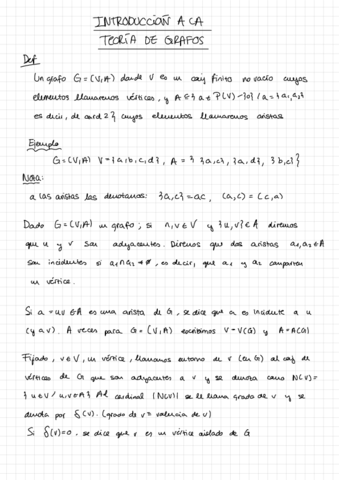 INTRODUCCIÓN A LA
TEORÍA DE GRAFOS
Def
Un grafo G=(V,A) donde V es un conj finito no vacío cuyos
elementos llamaremos vértices, y A ⊂ { a ∈ P(V) - {∅} / a = {a₁,a₂}
es decir, de card 2} cuyos elementos llamaremos aristas
Ejemplo
G=(V,A) V={a,b,c,d}, A = { {a,c}, {a,d}, {b,c} }
Nota:
a las aristas las denotamos: {a,c} = ac, (a,c) = (c,a)
Dado G=(V,A) un grafo; si u,v ∈ V y {u,v} ∈ A diremos
que u y v son adyacentes. Diremos que dos aristas a₁,a₂ ∈ A
son incidentes si a₁∩a₂ ≠ ∅, es decir, que a₁ y a₂ comparten
un vértice.
Si a = uv ∈ A es una arista de G, se dice que a es incidente a u
(y a v). A veces para G = (V,A) escribimos V=V(G) y A=A(G)
Fijado, v ∈ V, un vértice, llamamos entorno de v (en G) al conj de
vértices de G que son adyacentes a v y se denota como N(v)=
{ u ∈ V / u,v ∈ A } Al cardinal |N(v)| se le llama grado de v y se
denota por δ(v). (grado de v = valencia de v)
Si δ(v)=0, se dice que v es un vértice aislado de G